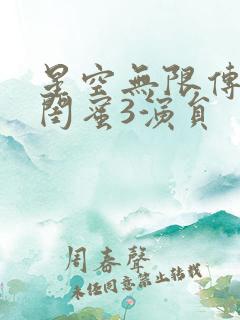 星空無限傳
閨蜜3演員
周春聲
未經同意禁止轉載